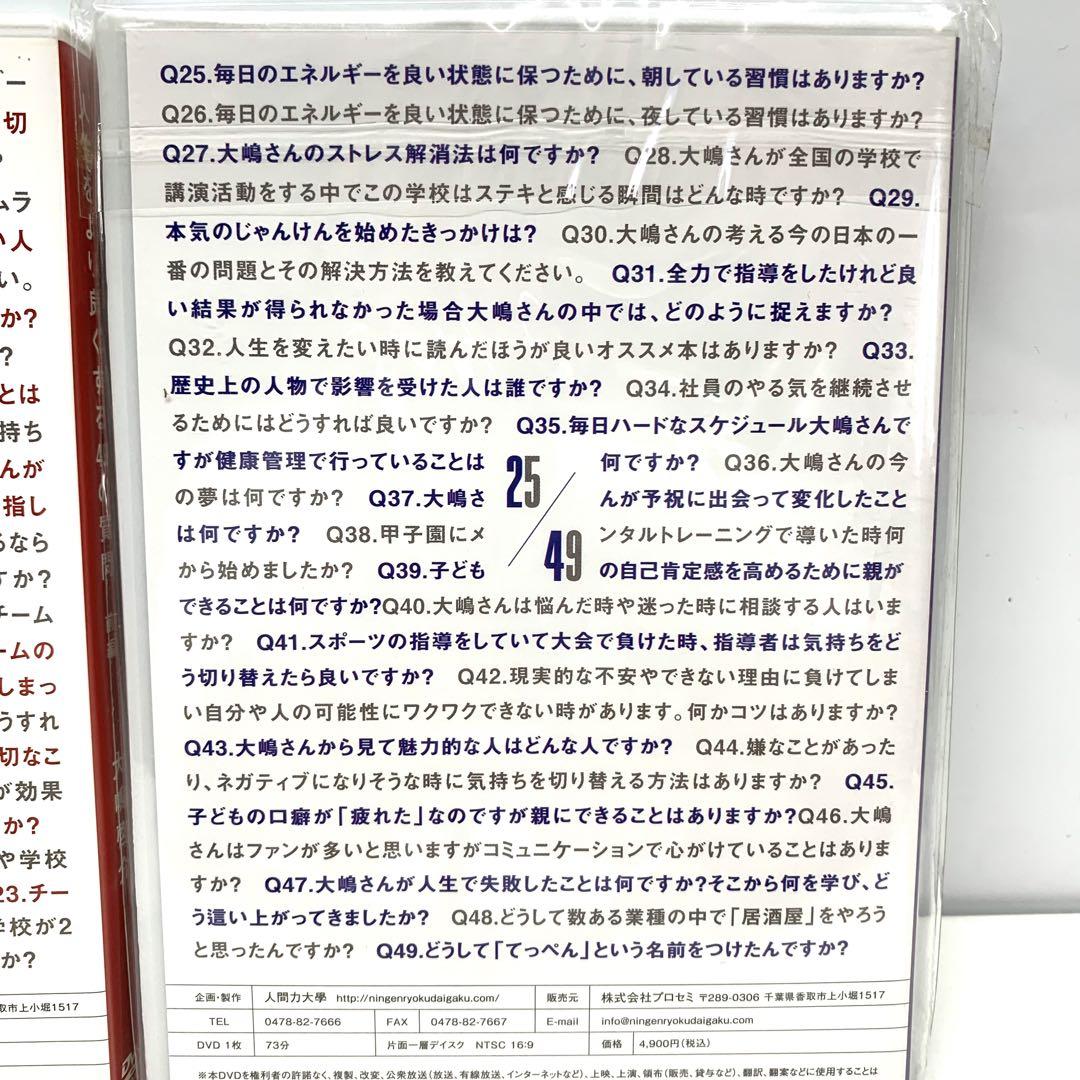 ー
切
ムラ
い人
い。
か?
?
とは
持ち
んが
指し
るなら
すか?
チーム
ームの
しまっ
うすれ
切なこ
が効果
か?
や学校
23.チー
学校が2
か?
取市上小堀1517
Q25.毎日のエネルギーを良い状態に保つために、朝している習慣はありますか?
Q26.毎日のエネルギーを良い状態に保つために、夜している習慣はありますか?
Q27.大嶋さんのストレス解消法は何ですか? Q28.大嶋さんが全国の学校で
講演活動をする中でこの学校はステキと感じる瞬間はどんな時ですか? Q29.
本気のじゃんけんを始めたきっかけは? Q30.大嶋さんの考える今の日本の一
番の問題とその解決方法を教えてください。 Q31.全力で指導をしたけれど良
い結果が得られなかった場合大嶋さんの中では、どのように捉えますか?
Q32.人生を変えたい時に読んだほうが良いオススメ本はありますか? Q33.
歴史上の人物で影響を受けた人は誰ですか? Q34.社員のやる気を継続させ
るためにはどうすれば良いですか? Q35.毎日ハードなスケジュール大嶋さんで
すが健康管理で行っていることは 何ですか? Q36.大嶋さんの今
の夢は何ですか? Q37.大嶋さ んが予祝に出会って変化したこと
は何ですか? Q38.甲子園にメ ンタルトレーニングで導いた時何
から始めましたか? Q39.子ども の自己肯定感を高めるために親が
25/49
できることは何ですか?Q40.大嶋さんは悩んだ時や迷った時に相談する人はいま
すか? Q41.スポーツの指導をしていて大会で負けた時、指導者は気持ちをど
う切り替えたら良いですか? Q42.現実的な不安やできない理由に負けてしま
い自分や人の可能性にワクワクできない時があります。何かコツはありますか?
Q43.大嶋さんから見て魅力的な人はどんな人ですか? Q44.嫌なことがあった
り、ネガティブになりそうな時に気持ちを切り替える方法はありますか? Q45.
子どもの口癖が「疲れた」なのですが親にできることはありますか?Q46.大嶋
さんはファンが多いと思いますがコミュニケーションで心がけていることはありま
すか? Q47.大嶋さんが人生で失敗したことは何ですか?そこから何を学び、ど
う這い上がってきましたか? Q48.どうして数ある業種の中で「居酒屋」をやろう
と思ったんですか? Q49.どうして「てっぺん」という名前をつけたんですか?
企画・製作 人間力大學 http://ningenryokudaigaku.com/ 販売元 株式会社プロセミ 〒289-0306 千葉県香取市上小堀1517
TEL 0478-82-7666 FAX 0478-82-7667 E-mail info@ningenryokudaigaku.com
DVD 1枚 73分 片面一層デイスク NTSC 16:9 価格 4,900円(税込)
※本DVDを権利者の許諾なく、複製、改変、公衆放送(放送、有線放送、インターネットなど)、上映、上演、領布(販売、貸与など)、翻訳、翻案などに使用することは